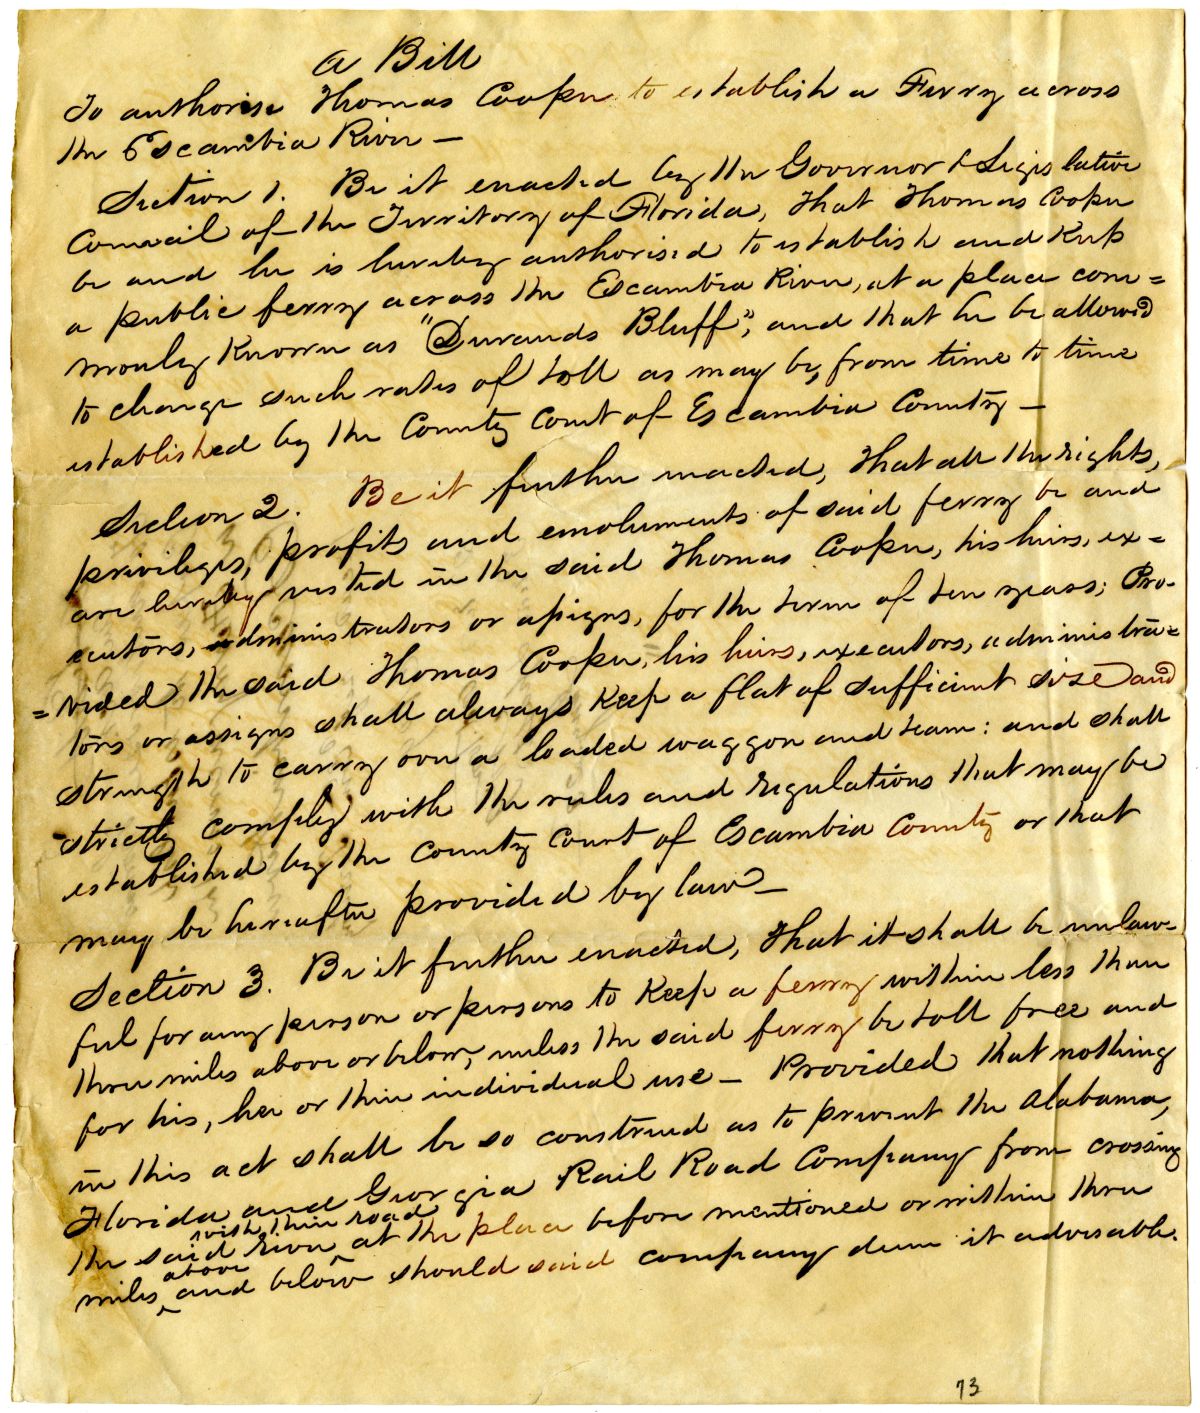 A Bill
To authorise Thomas Cooper to establish a Ferry across
the Escambia River —
Section 1. Be it enacted by the Governor & Legislative
Council of the Territory of Florida, That Thomas Cooper
be and he is hereby authorised to establish and Keep
a public ferry across the Escambia River, at a place com=
monly Known as "Durands Bluff", and that he be allowed
to charge such rates of toll as may be, from time to time
established by the County Court of Escambia County —
Section 2. Be it further enacted, That all the rights,
privileges, profits and emoluments of said ferry be and
are hereby vested in the said Thomas Cooper, his heirs, ex=
ecutors, administrators or assigns, for the term of ten years; Pro-
=vided the said Thomas Cooper, his heirs, executors, administra=
tors or assigns shall always Keep a flat of sufficient size and
strength to carry over a loaded waggon and team: and shall
strictly comply with the rules and regulations that may be
established by the County Court of Escambia County or that
may be hereafter provided by law —
Section 3. Be it further enacted, That it shall be unlaw-
ful for any person or persons to Keep a ferry within less than
three miles above or below, unless the said ferry be toll free and
for his, her or their individual use — Provided that nothing
in this act shall be so construed as to prevent the Alabama,
Florida and Georgia Rail Road Company from crossing
with their road
the said river ^ at the place before mentioned or within three
above
miles ^ and below should said company deem it advisable.
73